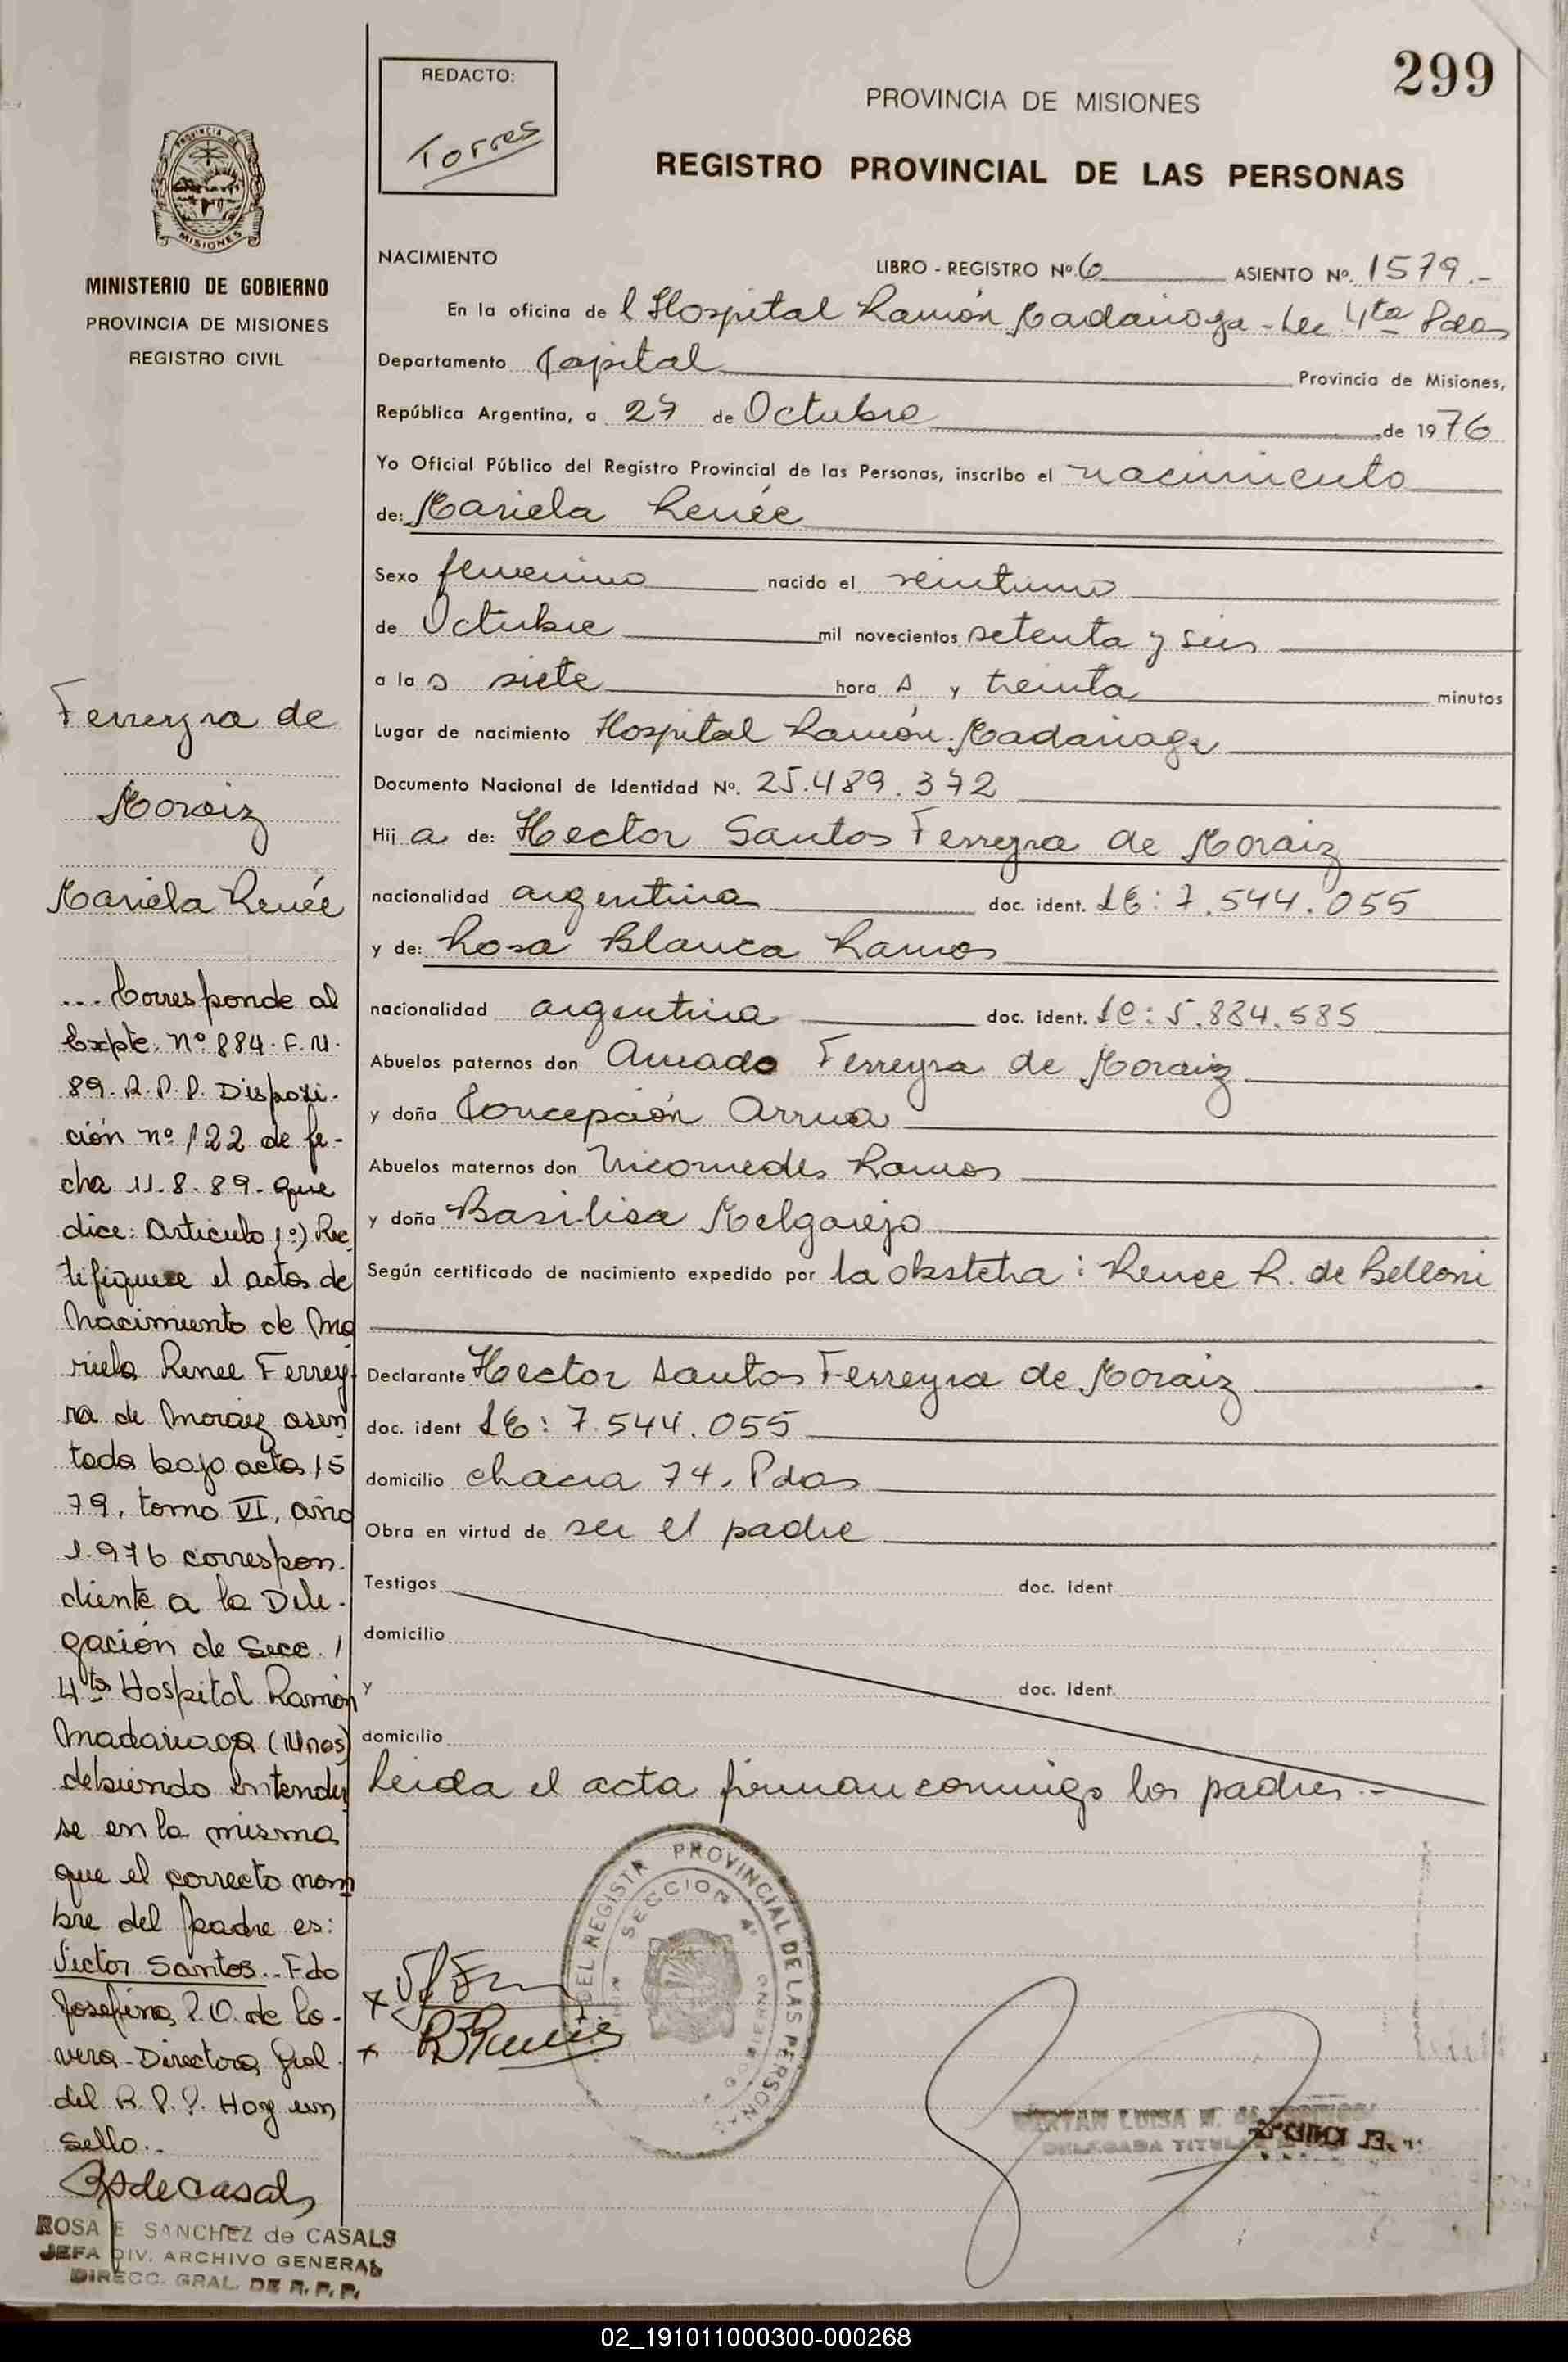 299
REDACTO:
Torres
PROVINCIA DE MISIONES
REGISTRO PROVINCIAL DE LAS PERSONAS
PROVINCIA DE
MISIONES
MINISTERIO DE GOBIERNO
PROVINCIA DE MISIONES
REGISTRO CIVIL
NACIMIENTO
LIBRO - REGISTRO Nº. 6 ASIENTO Nº. 1579.-
En la oficina de l Hospital Ramón Madariaga - Sec 4ta Pdas
Departamento Capital Provincia de Misiones,
República Argentina, a 27 de Octubre de 1976
Yo Oficial Público del Registro Provincial de las Personas, inscribo el nacimiento
de: Mariela Renée
Sexo femenino nacido el veintiuno
de Octubre mil novecientos setenta y seis
a las siete hora s y treinta minutos
Lugar de nacimiento Hospital Ramón Madariaga
Documento Nacional de Identidad Nº. 25.489.372
Hij a de: Hector Santos Ferreyra de Moraiz
nacionalidad argentina doc. ident. LE: 7.544.055
y de: Rosa Blanca Ramos
nacionalidad argentina doc. ident. LC: 5.884.585
Abuelos paternos don Amado Ferreyra de Moraiz
y doña Concepción Arrua
Abuelos maternos don Nicomedes Ramos
y doña Basilisa Melgarejo
Según certificado de nacimiento expedido por la obstetra: Renee R. de Belloni
Declarante Hector Santos Ferreyra de Moraiz
doc. ident LE: 7.544.055
domicilio chacra 74. Pdas
Obra en virtud de ser el padre
Testigos doc. ident
domicilio
y doc. ident.
domicilio
Leida el acta firman conmigo los padres.-
Ferreyra de
Moraiz
Mariela Renée
... Corresponde al
Expte. nº 884. F. N.
89. R.P.P. Disposi-
ción nº 122 de fe-
cha 11.8.89. que
dice: Articulo 1º) Rec
tifiquese el acta de
Nacimiento de Ma
riela Renee Ferrey
ra de Moraiz asen
tada bajo acta 15
79, tomo VI, año
1.976 correspon-
diente a la Dele-
gación de Secc.
4ta Hospital Ramón
Madariaga
debiendo entender
se en la misma
que el correcto nom
bre del padre es:
Victor Santos.. Fdo
Josefina P.O. de Lo-
vera - Directora Gral.
del R.P.P. Hay un
sello..
RSdeCasals
ROSA E SANCHEZ de CASALS
JEFA DIV. ARCHIVO GENERAL
DIRECC. GRAL. DE R. P. P.
x
x RBRamos
DEL REGISTR PROVINCIAL DE LAS PERSONAS
SECCION 4ª
GOBIERNO
LUISA M. de
DELEGADA TITULAR
02_191011000300-000268